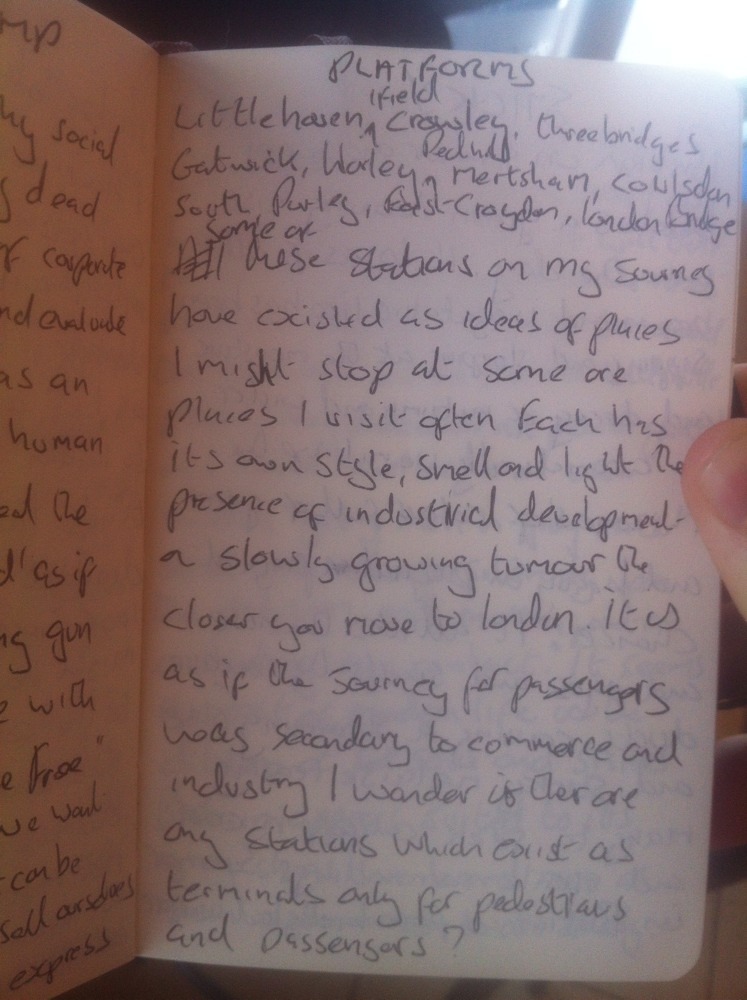 mp
my social
dead
of corporate
nd evaluate
as an
human
ed the
d' as if
ng gun
e with
e free"
we want
can be
sell ourselves
express
PLATFORMS
ifield
Littlehaven, Crawley, threebridges
Redhill
Gatwick, Horley, Mertsham, Coulsdon
South Purley, East-Croydon, london bridge
some of
All these stations on my journey
have existed as ideas of places
I might stop at some are
places I visit often Each has
its own style, smell and light the
presence of industrial development
a slowly growing tumour the
closer you move to london. it is
as if the journey for passengers
was secondary to commerce and
industry I wonder if ther are
any stations which exist as
terminals only for pedestrians
and passengers?